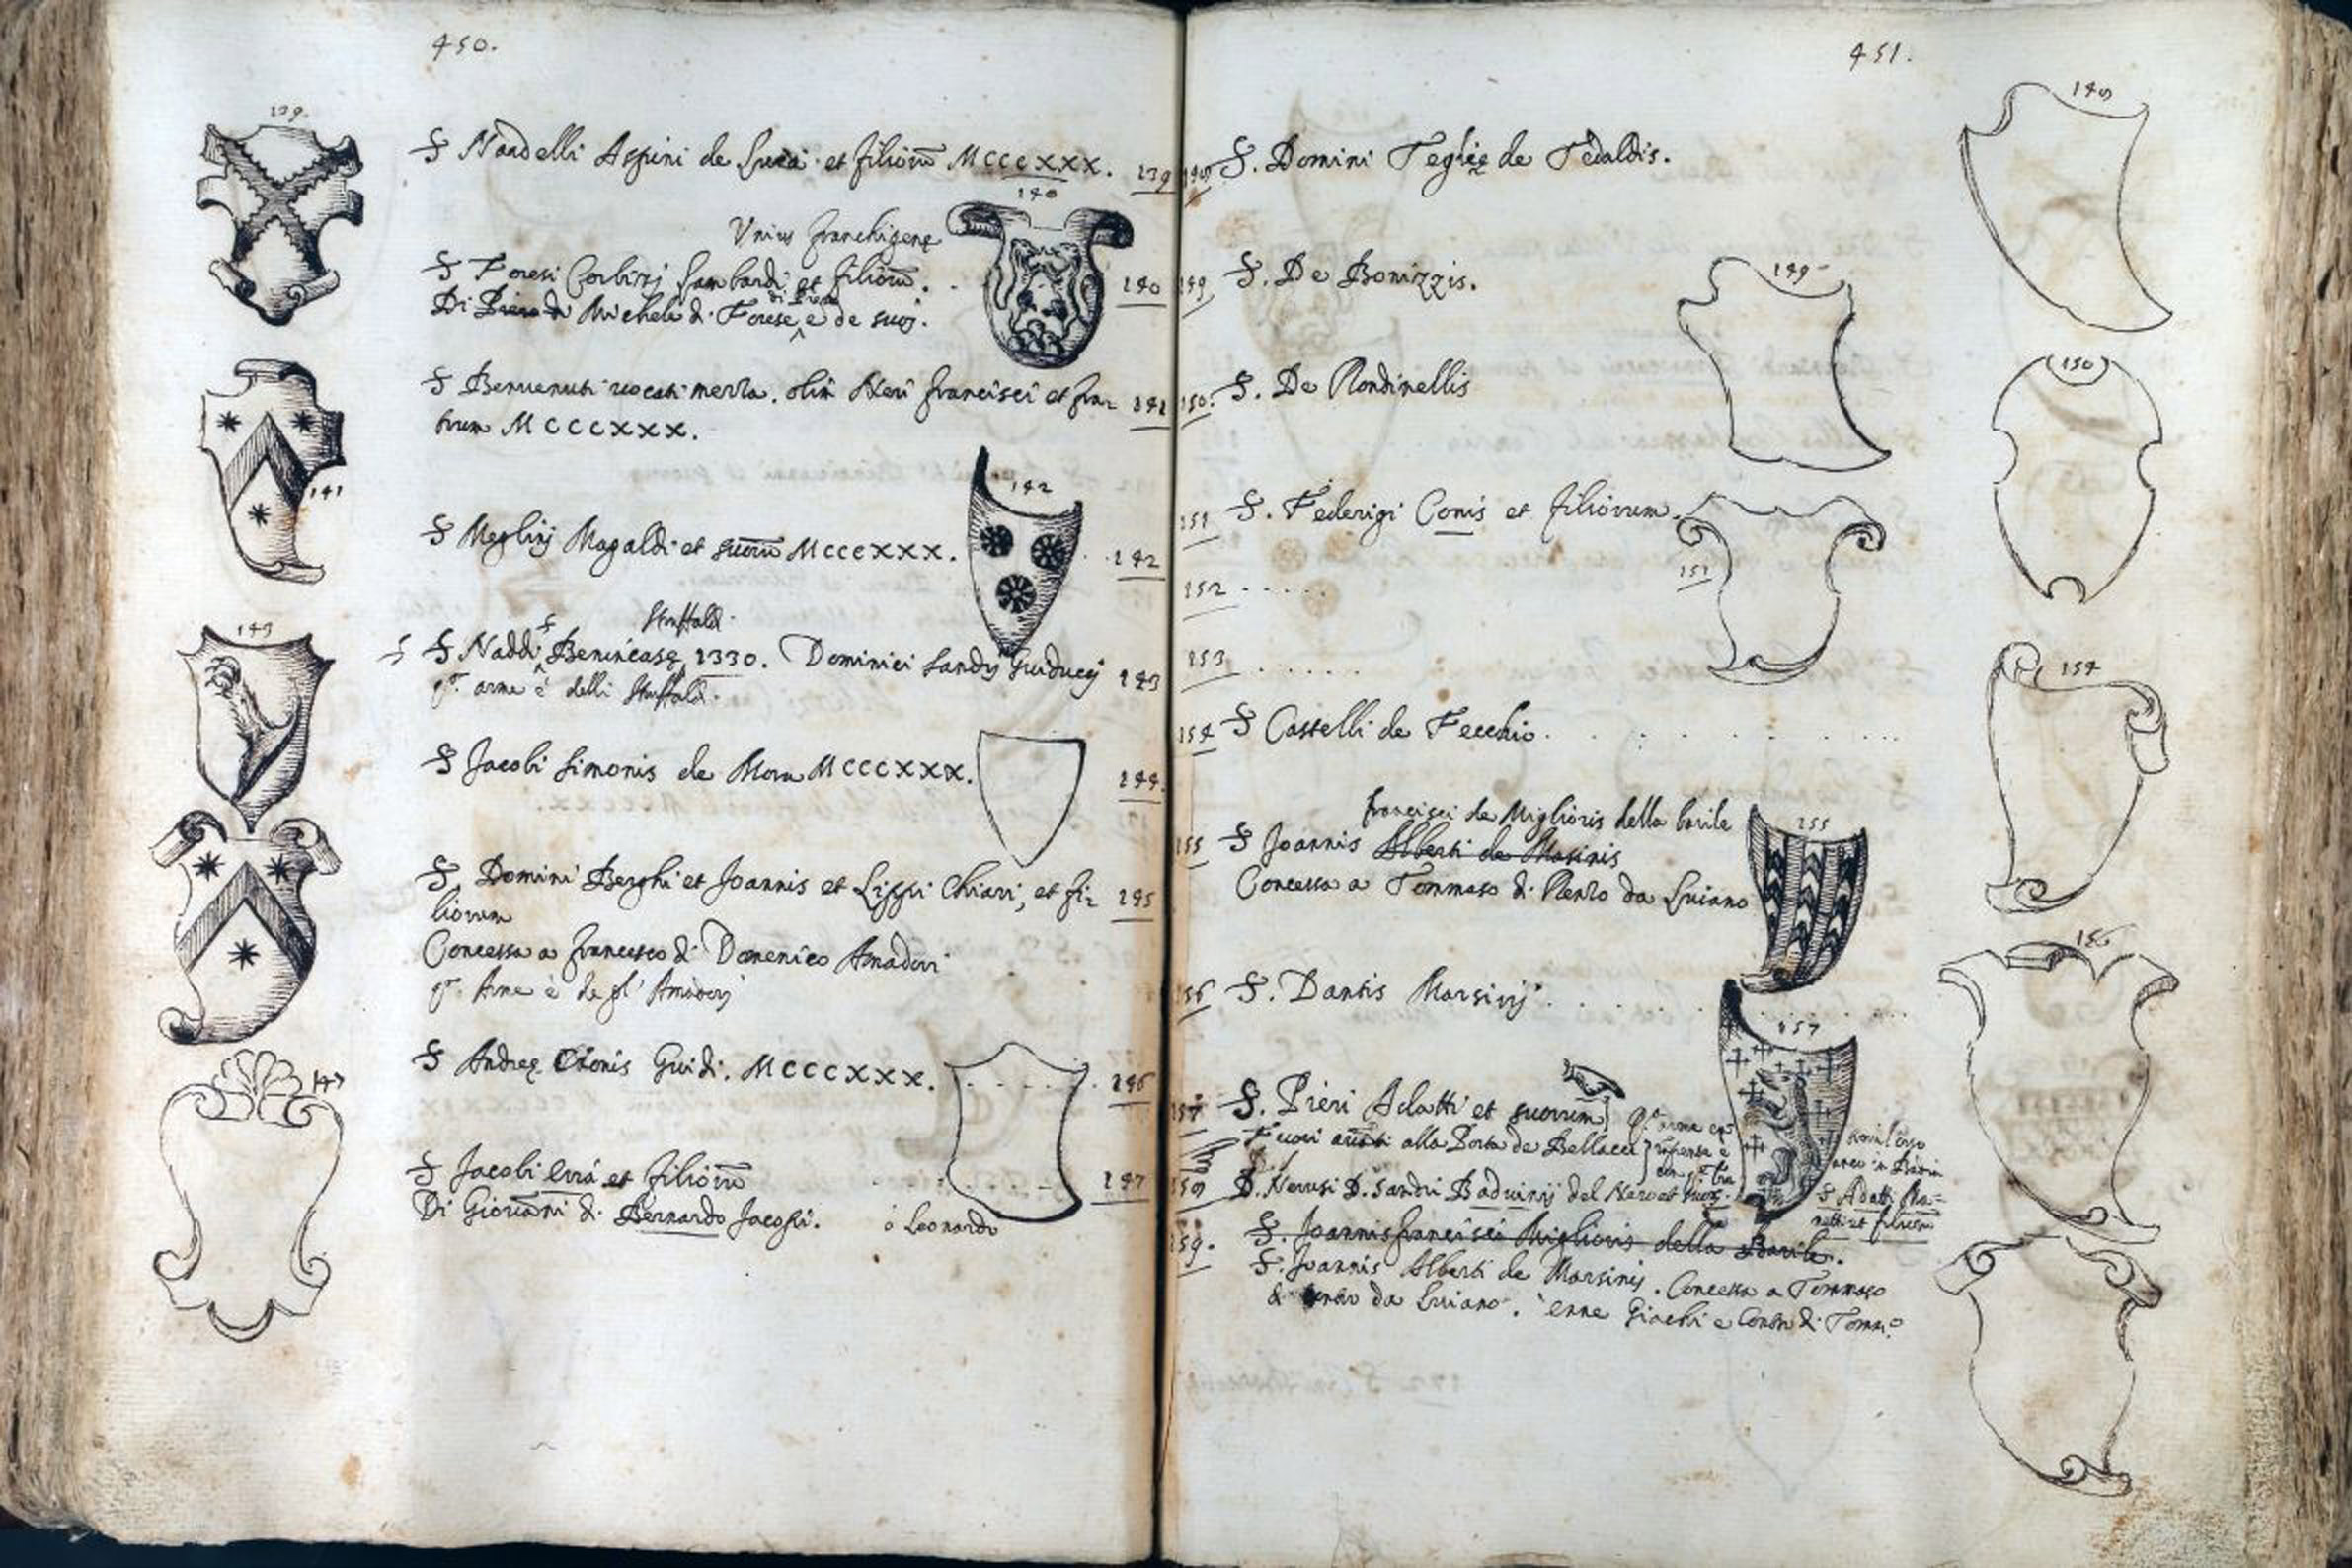 450.
139
S Nardelli Aspini de Luca et filiorū MCCCXXX. 139
140
Unius franchigenę
S Foresi Corbizj Lambardi et filiorū. 140
di Piero
Di Piero di Michele di Forese e de suoj.
S Benvenuti vocati merla. olim Neri francisci et fra= 141
trum MCCCXXX.
141
142
S Meglinj Magaldi et suorū MCCCXXX. 142
143
Stuffaldi
S S Naddi Benincasę 1330. Dominici Sandrj Guiduccij 143
qᵃ arme è delli Stuffaldi.
S Jacobi Simonis de Mora MCCCXXX. 144.
S Domini Berghi et Joannis et Lippi Chiari, et fi= 145
liorum
Concessa a francesco di Domenico Amadori
qᵃ Arme è de gl' Amadorj
S Andreę Cionis Guidi. MCCCXXX. 146
147
S Jacobi et filiorū 147
Di Giovāni di Bernardo Jacopi. ò Leonardo
451.
148
148 S. Domini Teghię de Tedaldis.
149 S. De Bonizzis.
149
150. S. De Rondinellis
(150)
151 S. Federigi Conis et filiorum.
151
152 . . . . .
153 . . . . .
154 S Castelli de Fecchio.
154
francisci de Miglioris della barile
155 S Joannis Alberti de Masinis
155
Concessa a Tommaso di Renzo da Luiano
156 S. Dantis Marsinij.
156
157
157 S. Pieri Adatti et suorum
Fuori alla Porta de Bellacci
qᵃ arme
158 D. Nerusi D. Sandri Baduinij del Nero et suor.
S Adatti Ma=
natti et filiorum
159. S. Joannis francisci Miglioris della Barile.
S. Joannis Alberti de Marsinij. Concessa a Tommaso
di Renzo da Luiano. enne Giachi e Conte di Tomm.º